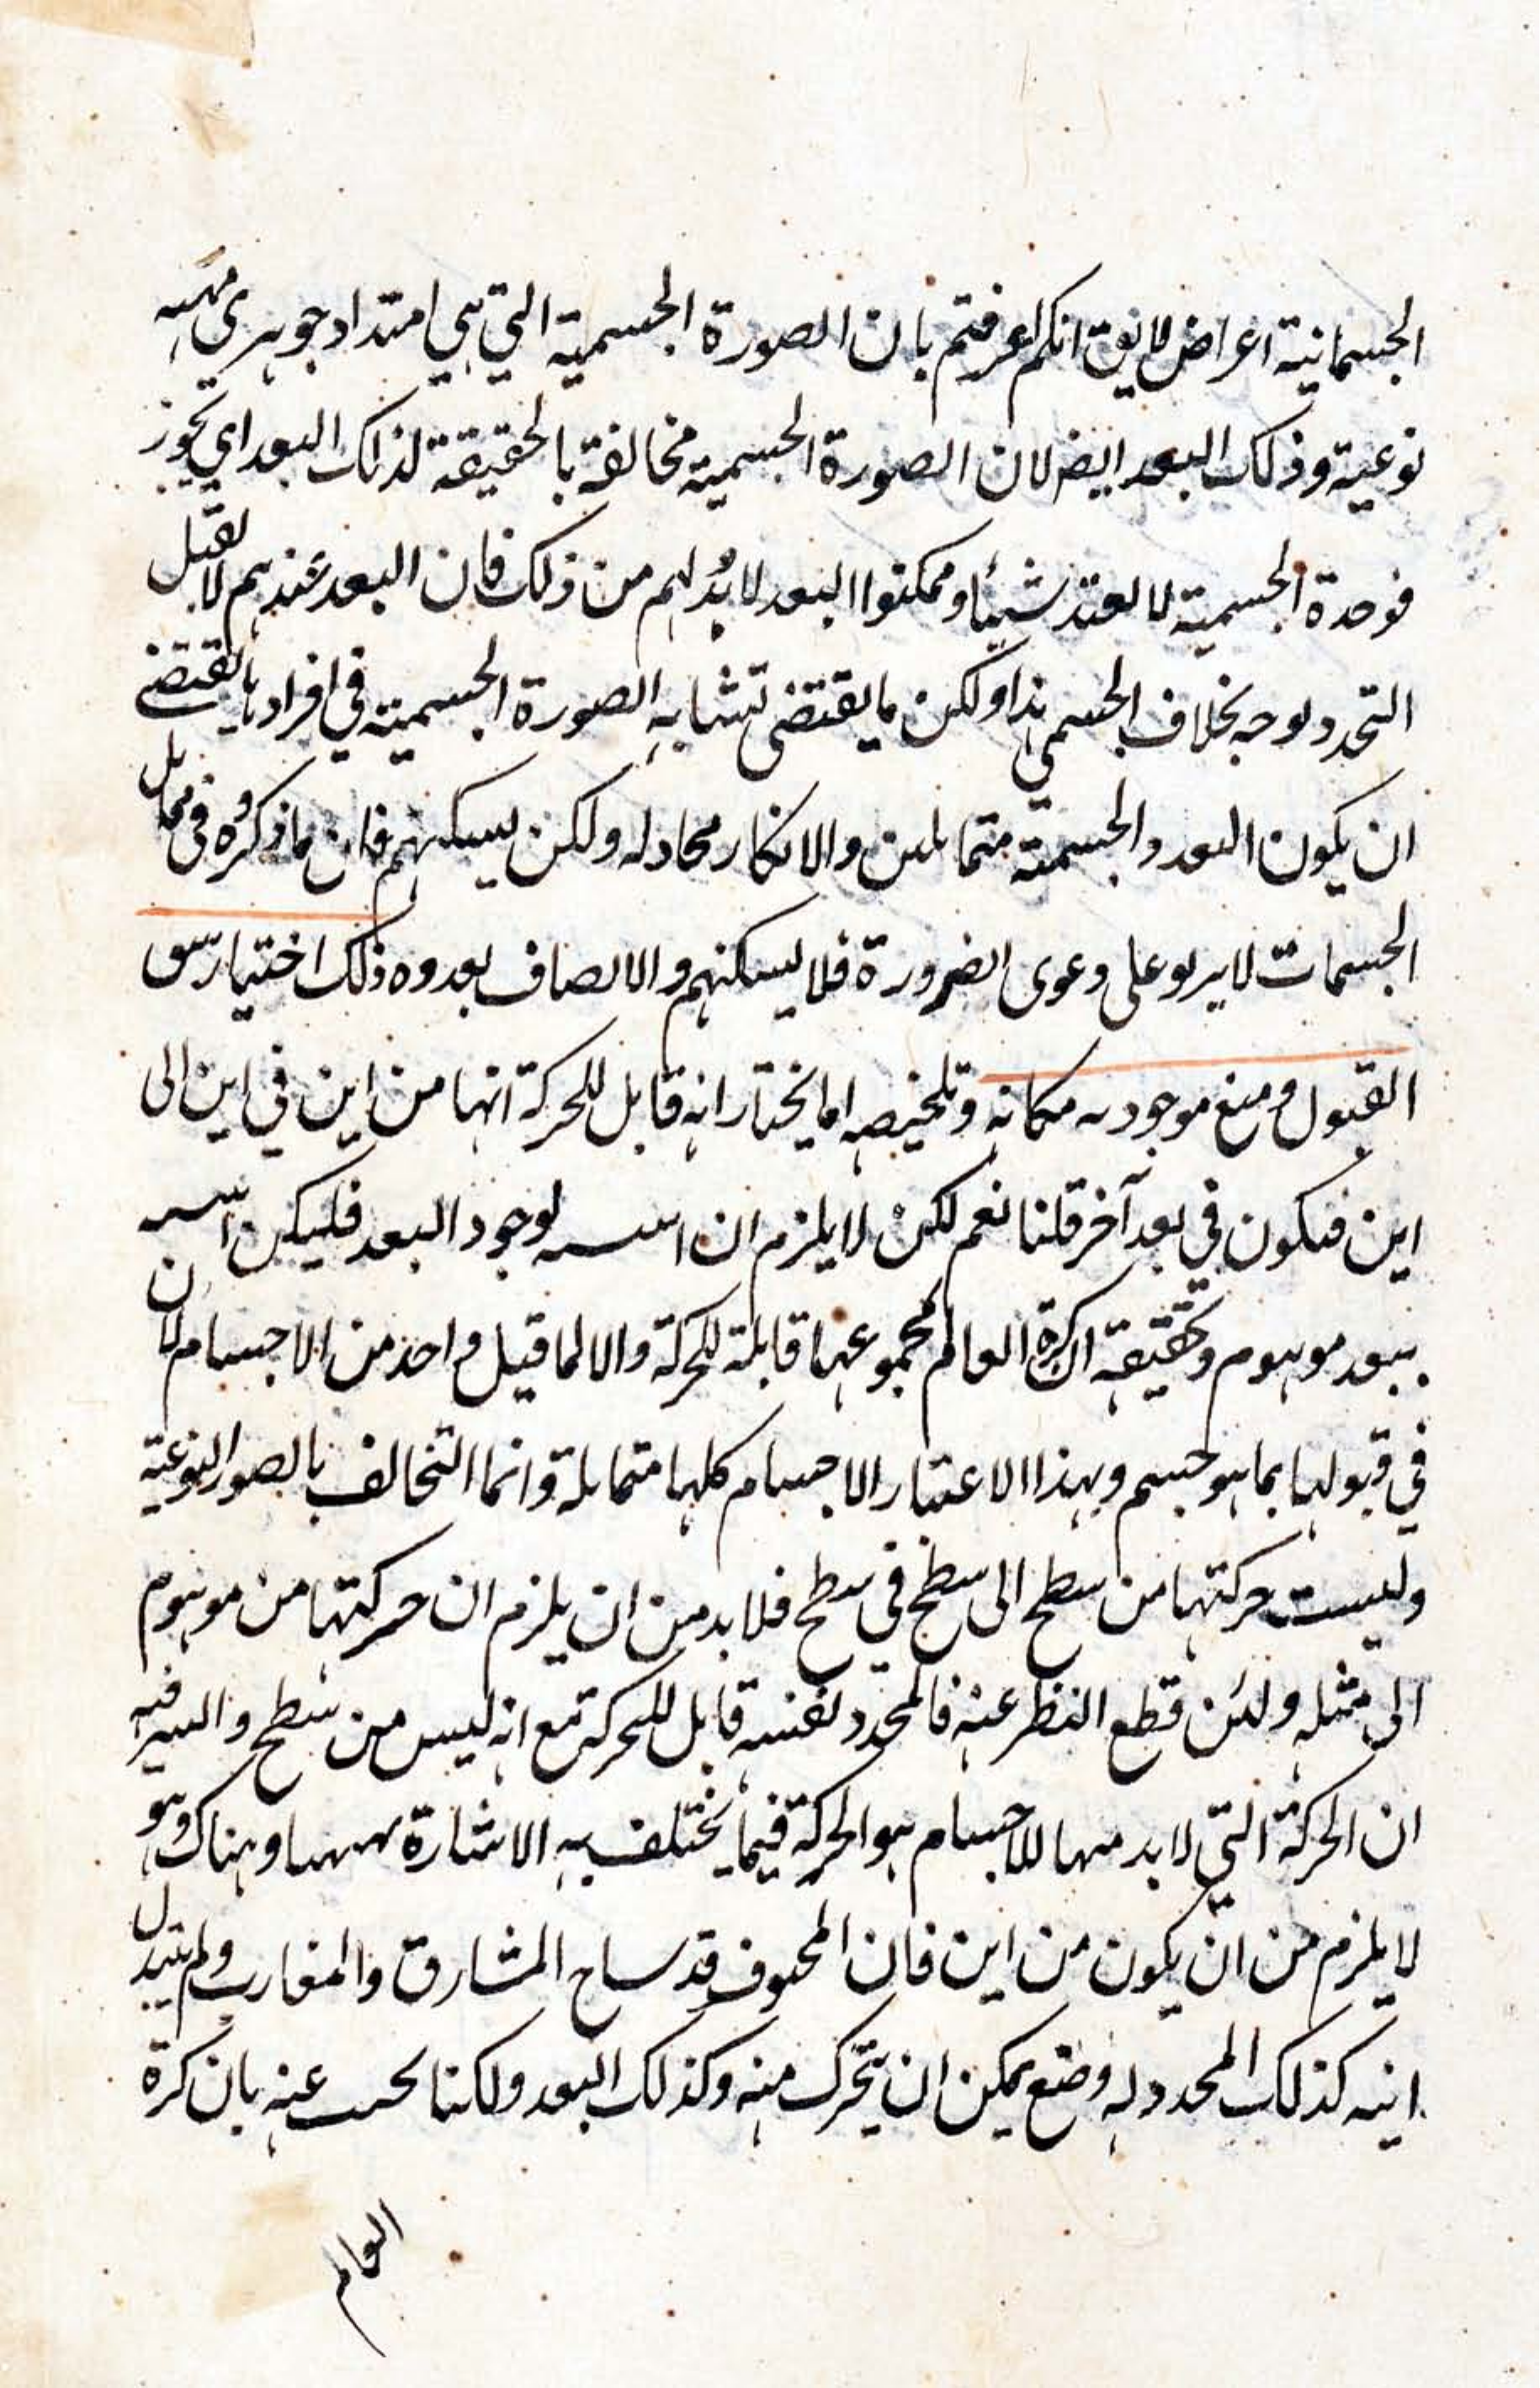 الجسمانية اعراض لا يق انكم اعرفتم بان الصورة الجسمية التي هي امتداد جوهري مهيه
نوعية وذلك البعد ايض لان الصورة الجسمية مخالفة بالحقيقة لذلك البعد اي تجوز
فوحدة الجسمية لا تفيد شيئا وممكنوا البعد لا بد لهم من ذلك فان البعد عندهم لا يقبل
التحدد بوجه بخلاف الجسمي هذا ولكن ما يقتضى تشابه الصورة الجسمية في افرادها يقتضى
ان يكون البعد والجسمية متماثلين والانكار مجادله ولكن يسكنهم فان ما ذكره في تماثل
الجسمات لا يربو على دعوى الضرورة فلا يسكنهم والانصاف بعدوه ذلك اختيار سق
القبول ومنع موجود مكانه وتلخيصه اما يختار انه قابل للحركة انها من اين في اين الى
اين فيكون في بعد آخر قلنا نعم لكن لا يلزم ان لوجود البعد فليكن
ببعد موهوم وتحقيقه ان كرة العالم بمجموعها قابلة للحركة والا لما قيل واحد من الاجسام لان
في قبولها بما هو جسم وبهذا الاعتبار الاجسام كلها متماثلة وانما التخالف بالصور النوعية
وليست حركتها من سطح الى سطح في سطح فلا بد من ان يلزم ان حركتها من موهوم
الى مثله ولئن قطع النظر عنه فالمحدد نفسه قابل للحركة مع انه ليس من سطح والسر فيه
ان الحركة التي لا بد منها للاجسام هو الحركة فيما يختلف به الاشارة ههنا وهناك وهو
لا يلزم من ان يكون من اين فان المحبوف قد ساح المشارق والمغارب ولم يتبدل
اينه كذلك المحدد له وضع يمكن ان يتحرك منه وكذلك البعد ولكنا عنه بان كرة
العالم